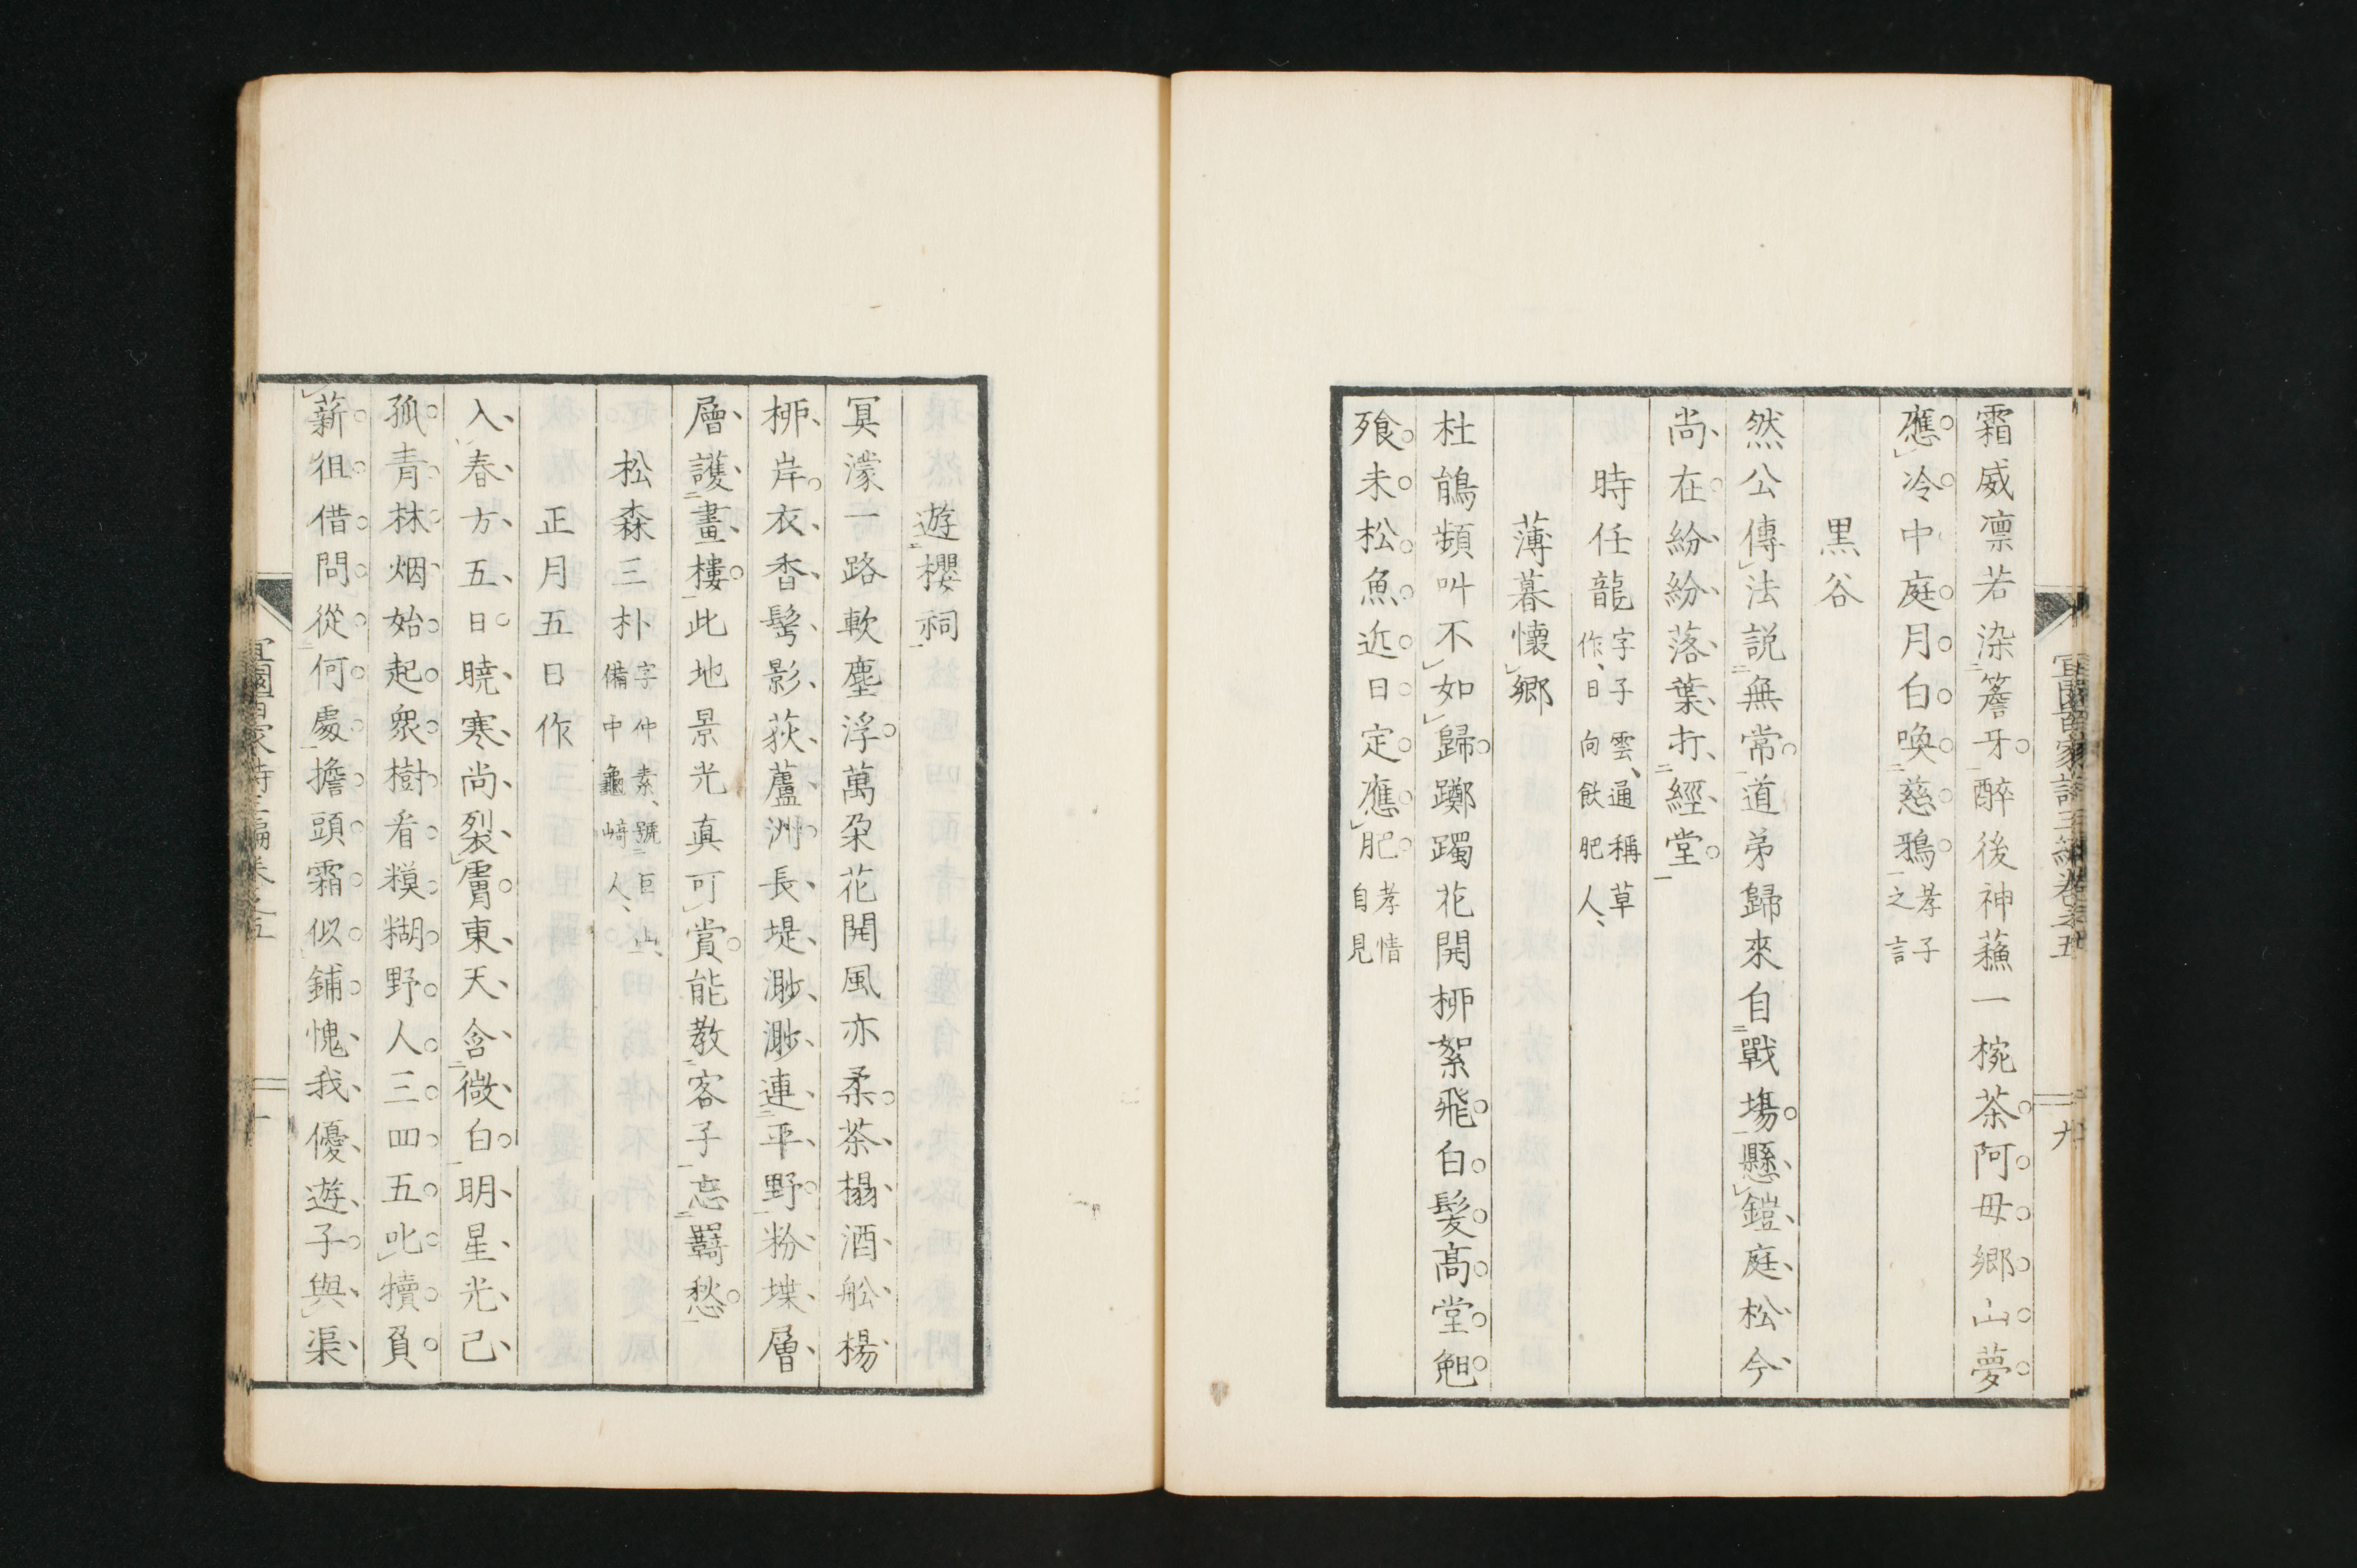 霜威凛若染簷牙醉後神蘓一椀茶阿母鄉山夢
應冷中庭月白喚慈鴉孝子之言
黒谷
然公傳法説無常道弟歸來自戰塲懸鎧庭松今
尚在紛紛落葉打經堂
時任龍字子雲、通稱草作、日向飫肥人、
薄暮懷鄉
杜鵑頻叫不如歸躑躅花開栁絮飛白髪高堂匏
飱未松魚近日定應肥孝情自見
遊櫻祠
冥濛一路軟塵浮萬朶花開風亦柔茶榻酒舩楊
栁岸衣香髩影荻蘆洲長堤渺渺連平野粉堞層
層護畫樓此地景光真可賞能教客子忘羇愁
松森三朴字仲素、號巨山、備中龜﨑人、
正月五日作
入春方五日曉寒尚裂膚東天含微白明星光已
孤青林烟始起衆樹看糢糊野人三四五叱犢負
薪徂借問從何處擔頭霜似鋪愧我優遊子與渠